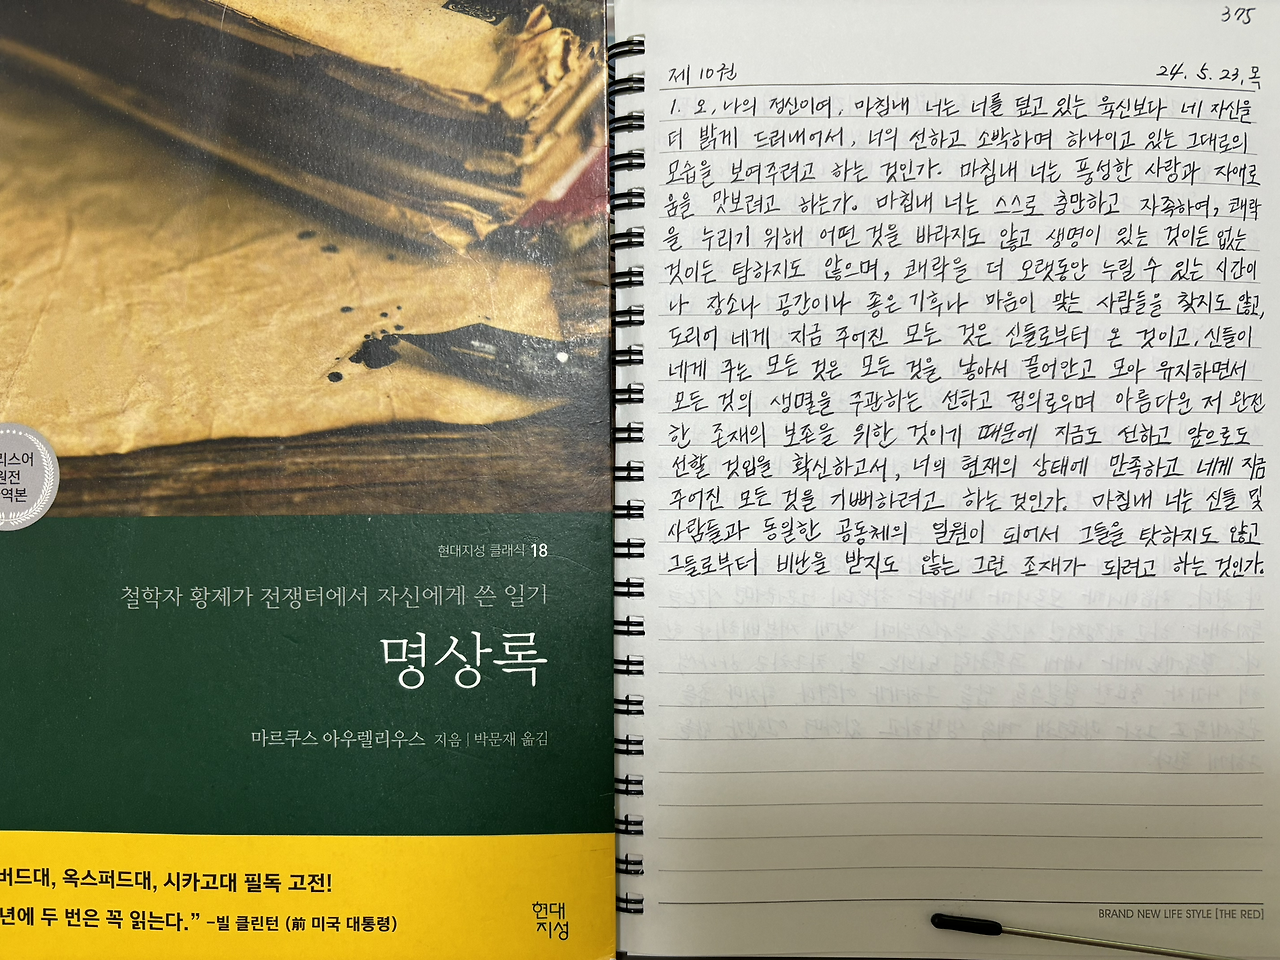 리스어
원전
역본
현대지성 클래식 18
철학자 황제가 전쟁터에서 자신에게 쓴 일기
명상록
마르쿠스 아우렐리우스 지음 | 박문재 옮김
버드대, 옥스퍼드대, 시카고대 필독 고전!
년에 두 번은 꼭 읽는다.” –빌 클린턴 (前 미국 대통령)
현대
지성
375
제 10권 24. 5. 23, 목
1. 오, 나의 정신이여, 마침내 너는 너를 덮고 있는 육신보다 네 자신을
더 밝게 드러내어서, 너의 선하고 소박하며 하나이고 있는 그대로의
모습을 보여주려고 하는 것인가. 마침내 너는 풍성한 사랑과 자애로
움을 맛보려고 하는가. 마침내 너는 스스로 충만하고 자족하여, 쾌락
을 누리기 위해 어떤 것을 바라지도 않고 생명이 있는 것이든 없는
것이든 탐하지도 않으며, 쾌락을 더 오랫동안 누릴 수 있는 시간이
나 장소나 공간이나 좋은 기후나 마음이 맞는 사람들을 찾지도 않고,
도리어 네게 지금 주어진 모든 것은 신들로부터 온 것이고, 신들이
네게 주는 모든 것은 모든 것을 낳아서 끌어안고 모아 유지하면서
모든 것의 생멸을 주관하는 선하고 정의로우며 아름다운 저 완전
한 존재의 보존을 위한 것이기 때문에 지금도 선하고 앞으로도
선할 것임을 확신하고서, 너의 현재의 상태에 만족하고 네게 지금
주어진 모든 것을 기뻐하려고 하는 것인가. 마침내 너는 신들 및
사람들과 동일한 공동체의 일원이 되어서 그들을 탓하지도 않고
그들로부터 비난을 받지도 않는 그런 존재가 되려고 하는 것인가.
BRAND NEW LIFE STYLE [THE RED]